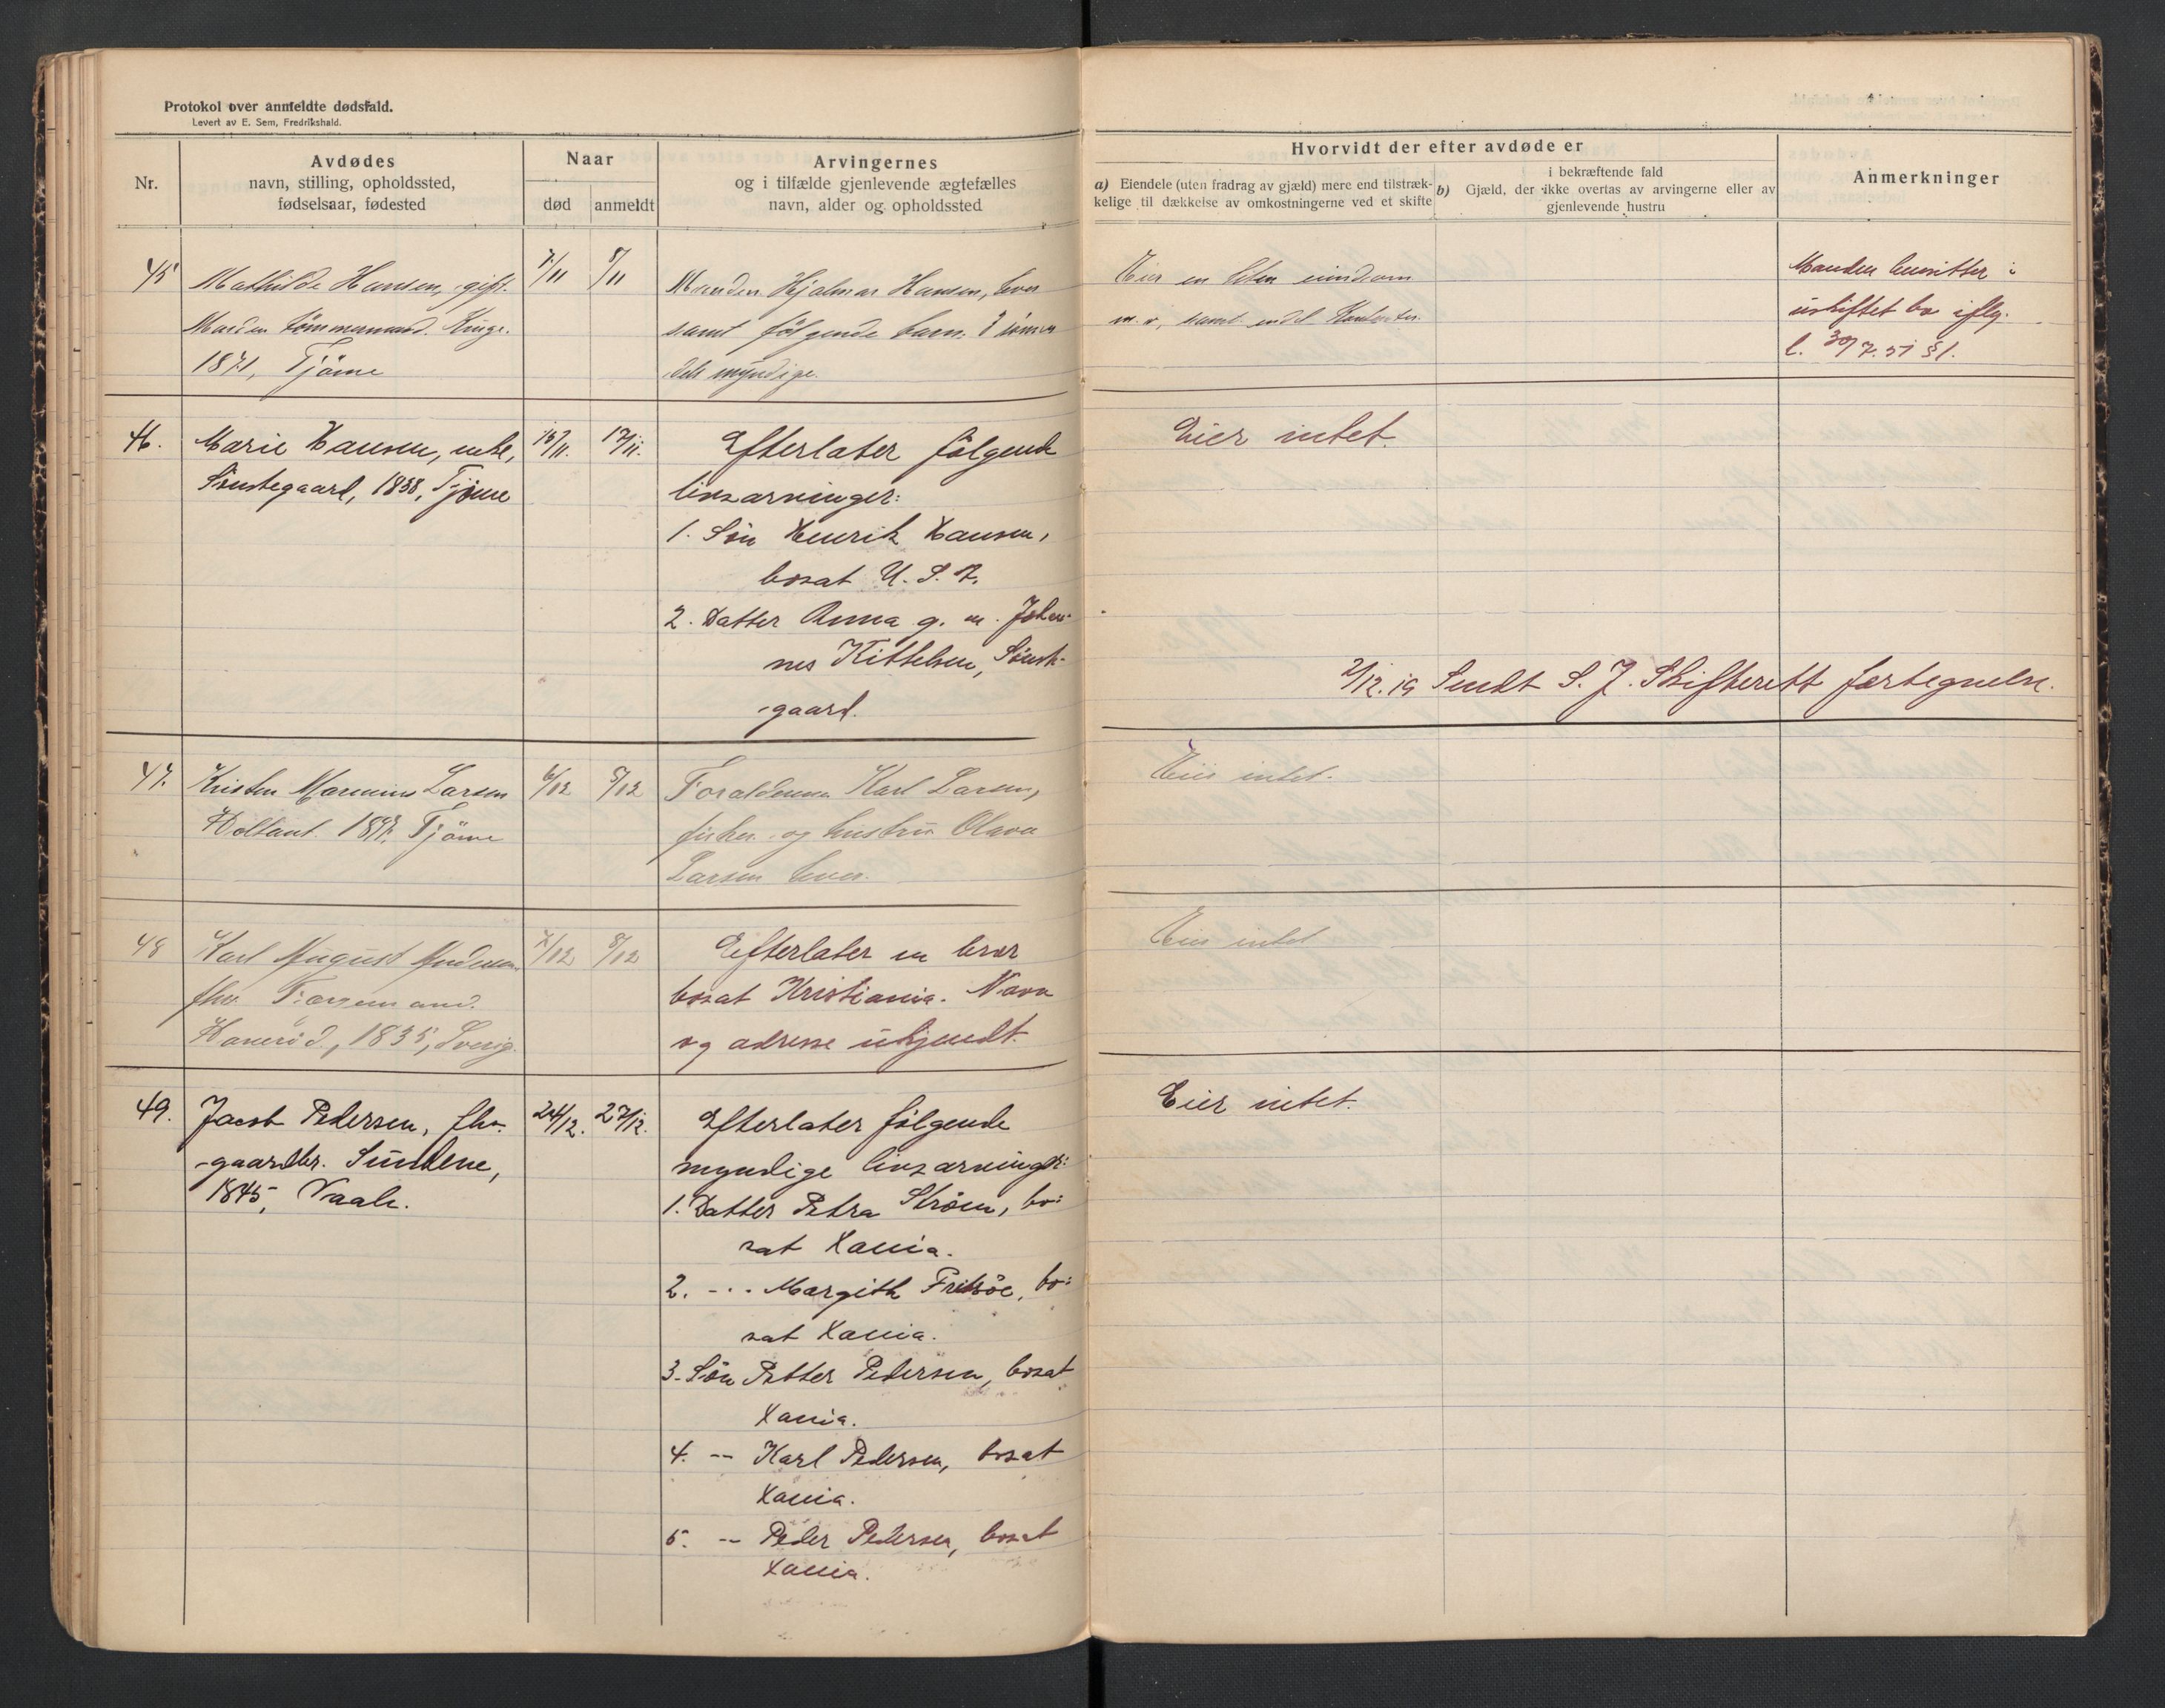 Protokol over anmeldte dødsfald.
Levert av E. Sem, Fredrikshald.
Nr.
Avdødes
navn, stilling, opholdssted,
fødselsaar, fødested
Naar
død
anmeldt
Arvingernes
og i tilfælde gjenlevende ægtefælles
navn, alder og opholdssted
Hvorvidt der efter avdøde er
a) Eiendele (uten fradrag av gjæld) mere end tilstræk-
kelige til dækkelse av omkostningerne ved et skifte
i bekræftende fald
b) Gjæld, der ikke overtas av arvingerne eller av
gjenlevende hustru
Anmerkninger
45
Mathilde Hansen, gift.
Manden tømmermand.
1871, Tjøme
7/11
8/11
Manden Hjalmar Hansen, lever
samt følgende barn: 8
dels myndige.
Eier en liten eiendom
m. v., samt endel
Manden hensitter i
uskiftet bo iflg.
l. 30/7. 51 § 1.
46.
Marie Hansen, enke,
Sønstegaard, 1838, Tjøme
15/11.
17/11.
Efterlater følgende
livsarvinger:
1. Søn Henrik Hansen,
bosat U. S. A.
2. Datter Anna g. m. Johan-
nes Kittelsen, Sønste-
-gaard.
Eier intet.
2/12. 19 Sendt S. J. Skifterett fortegnelse.
47.
Kristen Larsen
Holtant. 1897, Tjøme
6/12
8/12
Forældrene Karl Larsen,
fisker og hustru Olava
Larsen lever.
Eier intet.
48
Karl August Andersen
fhv.
1835, Sverige.
7/12
8/12
Efterlater en bror
bosat Kristiania. Navn
og adresse ukjendt.
Eier intet
49.
Jacob Pedersen, fhv.
-gaardbr. Sundene,
1845, Vaale.
24/12.
27/12.
Efterlater følgende
myndige livsarvinger:
1. Datter Petra Strøm, bo-
sat Xania.
2. -"- Margith Fritsøe, bo-
sat Xania.
3. Søn Petter Pedersen, bosat
Xania.
4. -"- Karl Pedersen, bosat
Xania.
5. -"- Peder Pedersen, bosat
Xania.
Eier intet.